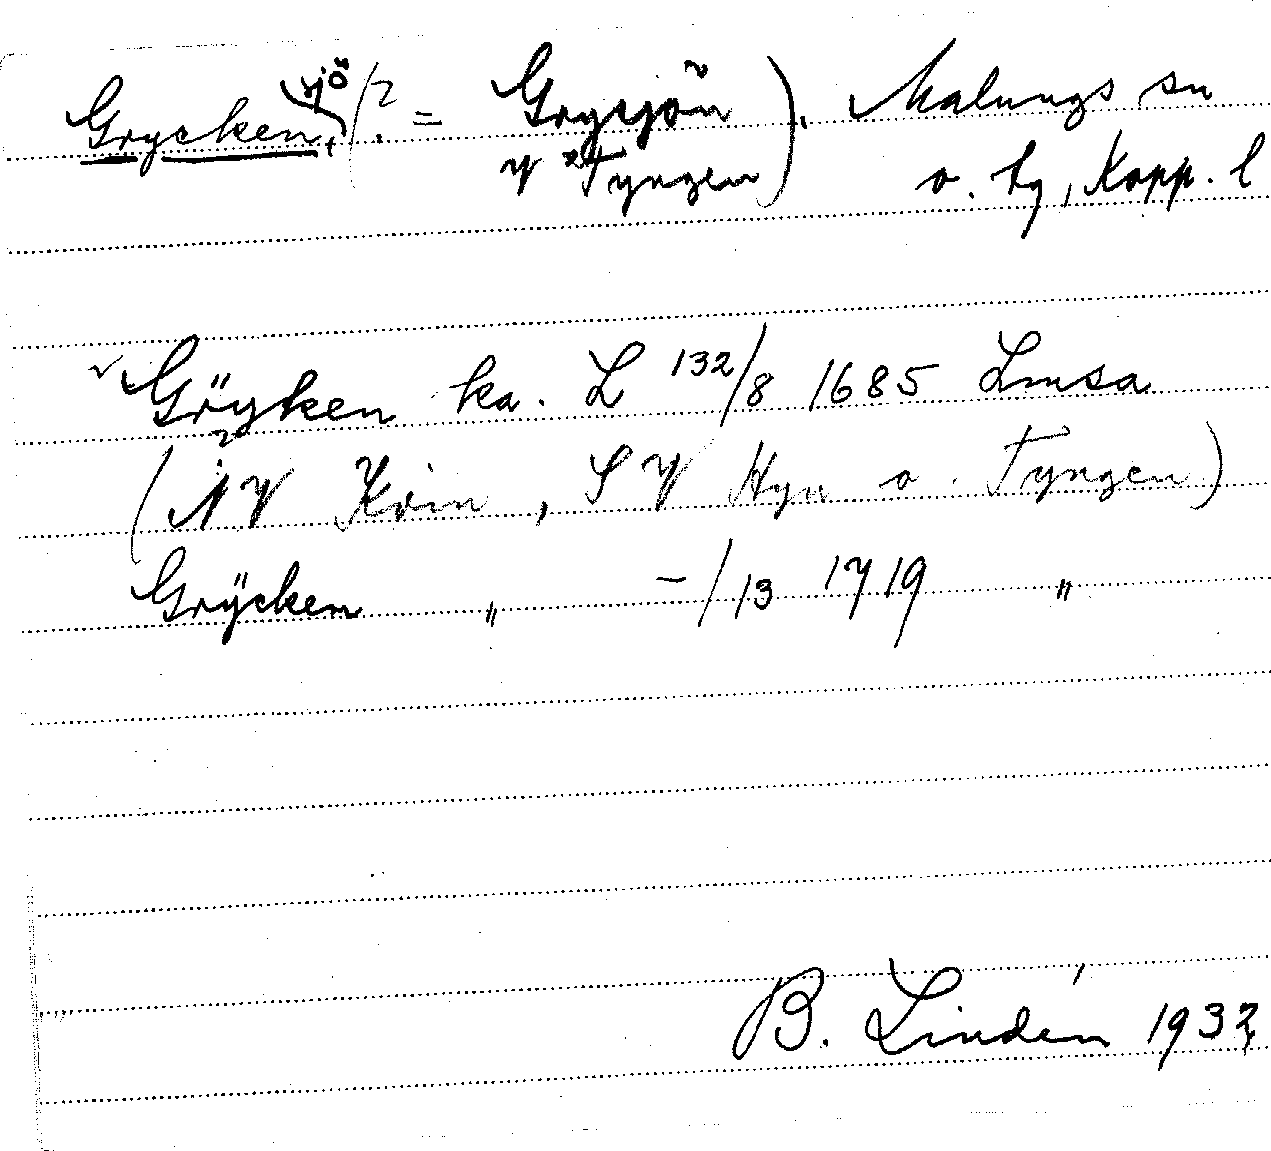 Grycken, sjö (? = Grysjön
V Tyngen), Malungs sn
o. tg, Kopp. l
Gröyken ka. L 132/8 1685 Lmsa
(NV Kvin, SV Hyn o. Tyngen)
Grÿcken " -/13 1719 "
B. Lindén 1932